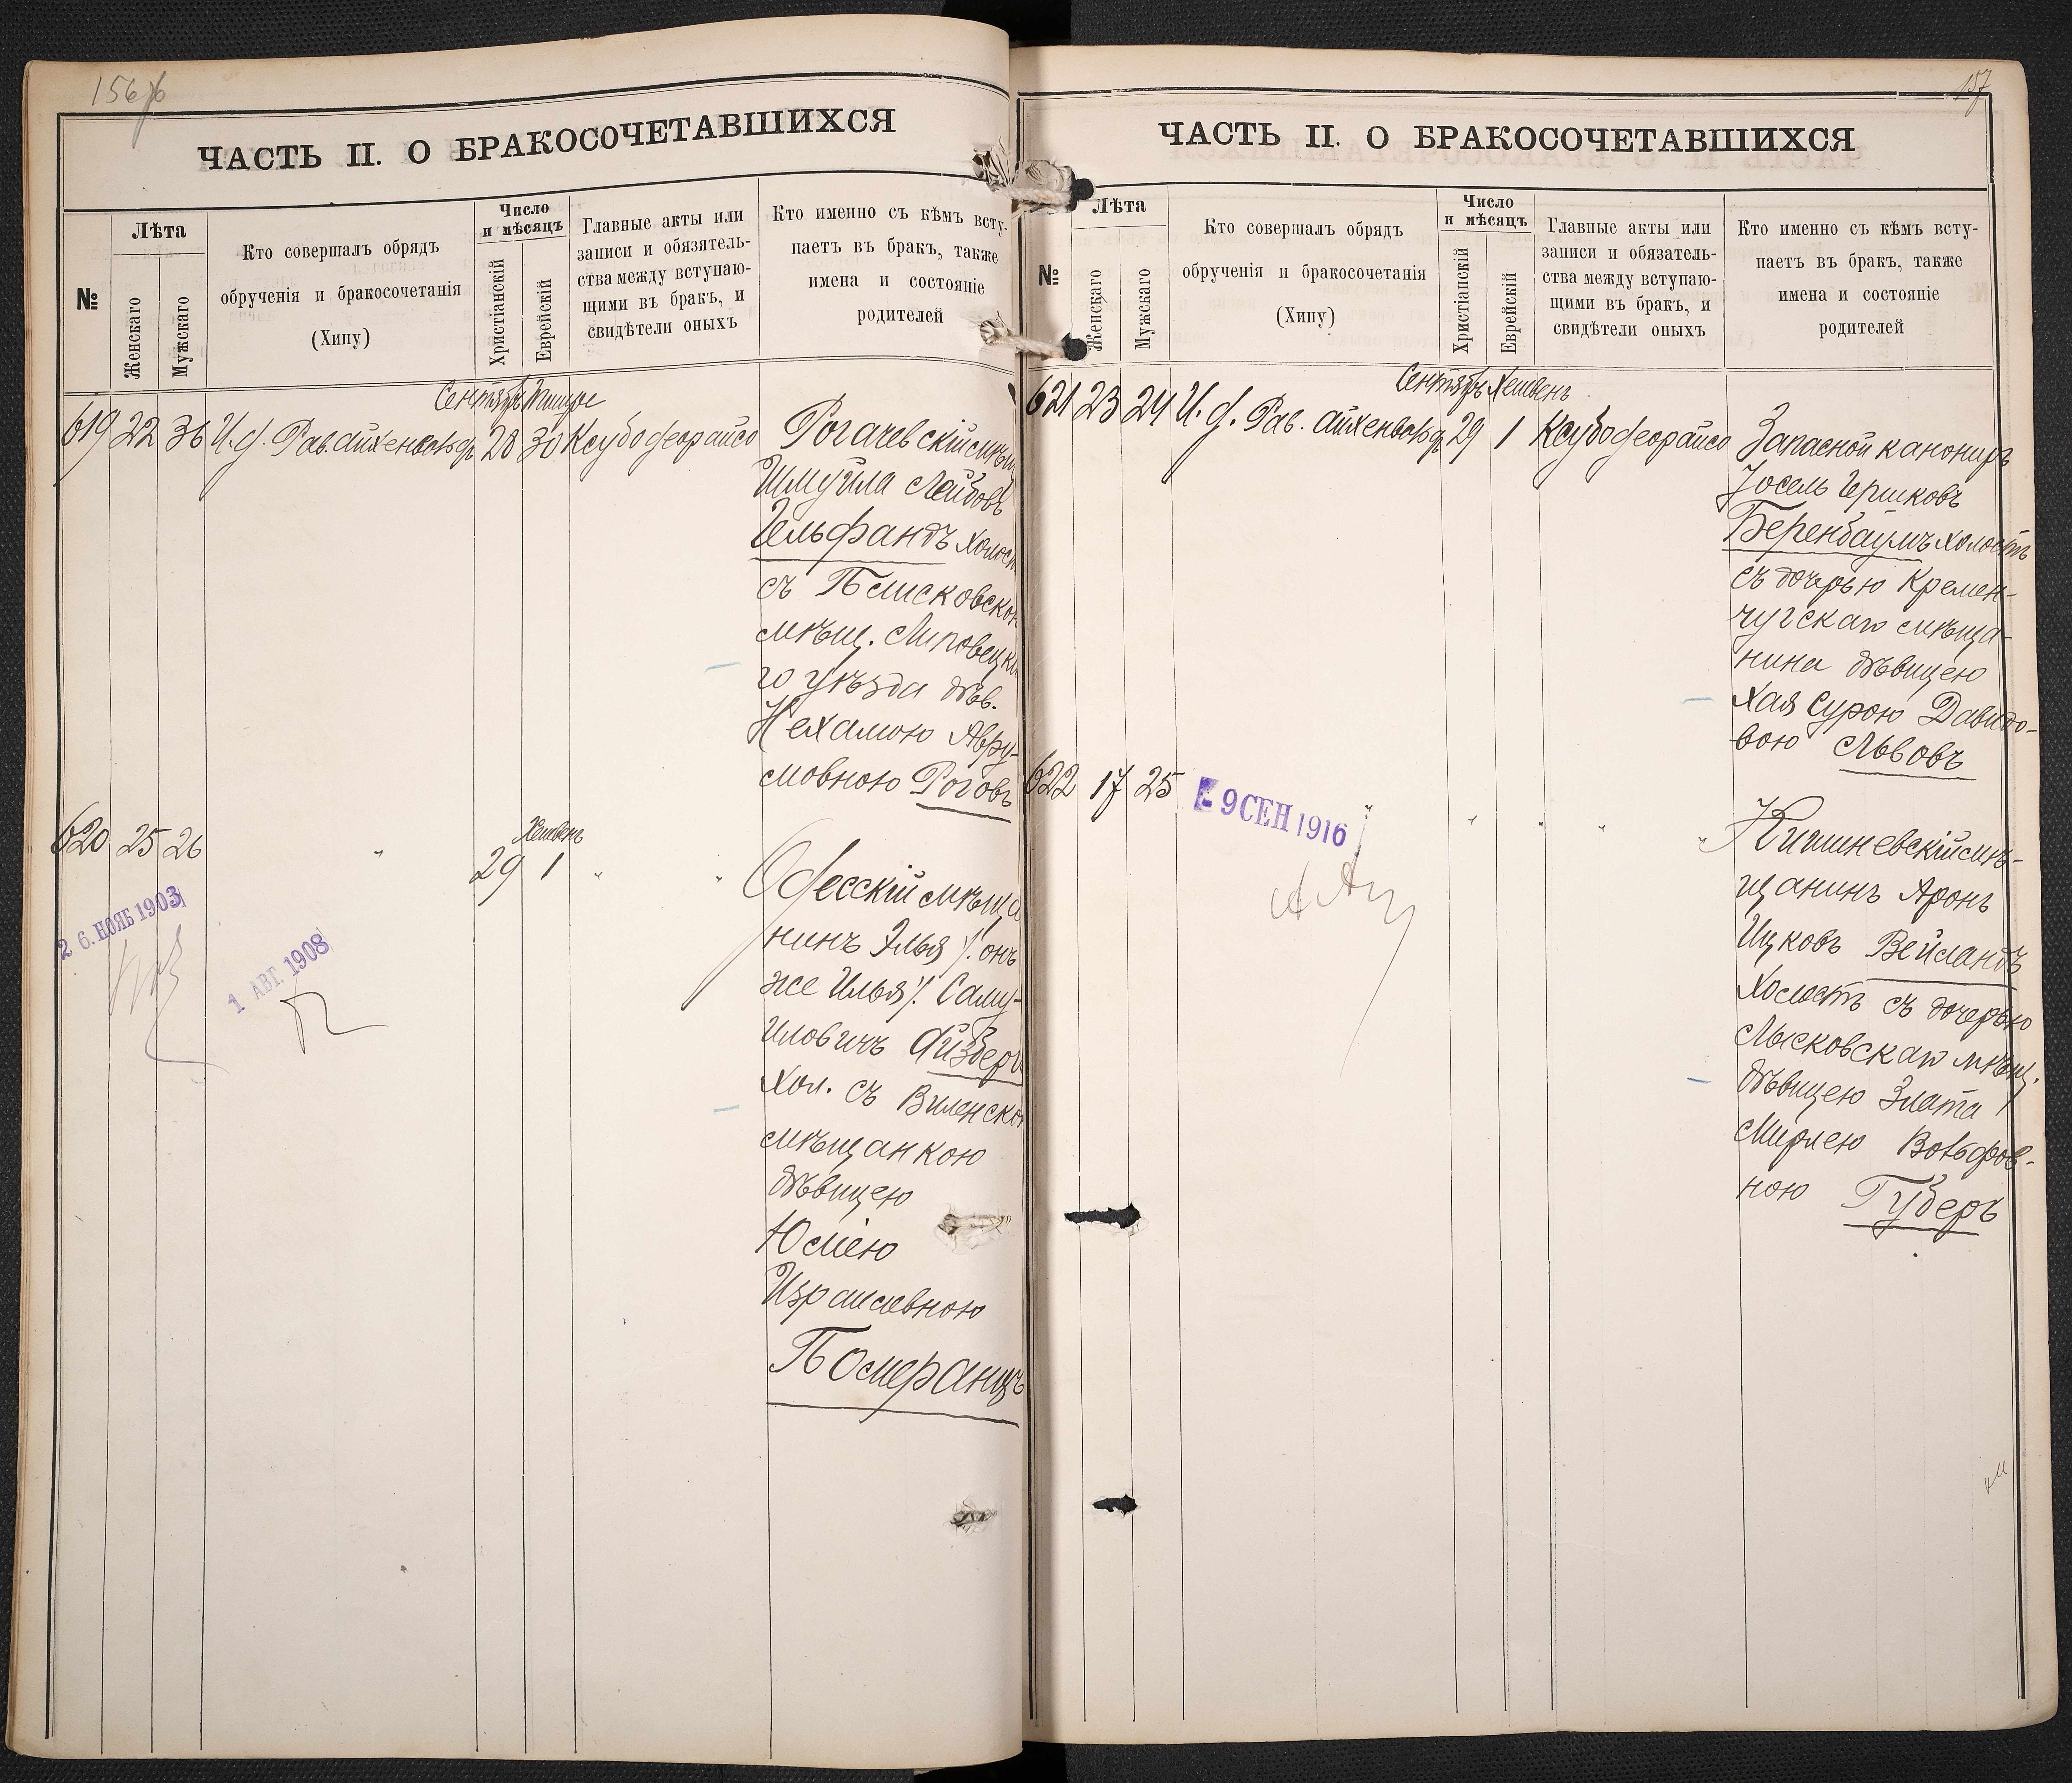 156
ЧАСТЬ II. О БРАКОСОЧЕТАВШИХСЯ
№
Лѣта
Женскаго
Мужскаго
Кто совершалъ обрядъ
обрученія и бракосочетанія
(Хипу)
Число
и мѣсяцъ
Христіанскій
Еврейскій
Главные акты или
записи и обязятель-
ства между вступаю-
щими въ бракъ, и
свидѣтели оныхъ
Кто именно съ кѣмъ всту-
паетъ въ бракъ, также
имена и состояніе
родителей
Сентябрь Тишре
619 22 36 И. д. Рав. Айхенвальдъ 28 30 Ксубо деорайсо
Рогачевскій мѣщ
Шмуйла Лейбовъ
Гельфандъ холост
съ Пписковскою
мѣщ. Липовецка
го уѣзда дѣв.
Нехамою Авру-
мовною Роговъ
Хешвенъ
620 25 26 " 29 1 " "
Одесскій мѣща
нинъ Элья /. онъ
же Илья /. Саму-
иловичъ Айзберг
Хол. съ Виленскою
мѣщанкою
дѣвицею
Юліею
Израилевною
Померанцъ
26. НОЯБ 1903
1 АВГ. 1908
157
ЧАСТЬ II. О БРАКОСОЧЕТАВШИХСЯ
№
Лѣта
Женскаго
Мужскаго
Кто совершалъ обрядъ
обрученія и бракосочетанія
(Хипу)
Число
и мѣсяцъ
Христіанскій
Еврейскій
Главные акты или
записи и обязатель-
ства между вступаю-
щими въ бракъ, и
свидѣтели оныхъ
Кто именно съ кѣмъ всту-
паетъ въ бракъ, также
имена и состояніе
родителей
Сентябрь Хешвенъ
621 23 24 И. д. Рав. Айхенвальдъ 29 1 Ксубо деорайсо
Запасной канониръ
Іосель Гершковъ
Беренбаумъ холостъ
съ дочерью Кремен-
чугскаго мѣща-
нина дѣвицею
Хая Сурою Давидо-
вою Львовъ
622 17 25 " " " " "
Кишиневскій мѣ-
щанинъ Аронъ
Ицковъ Вейландъ
Холостъ съ дочерью
Лысковскаго мѣщ.
дѣвицею Злата
Мирлею Вольфов-
ною Губеръ
- 9 СЕН 1916